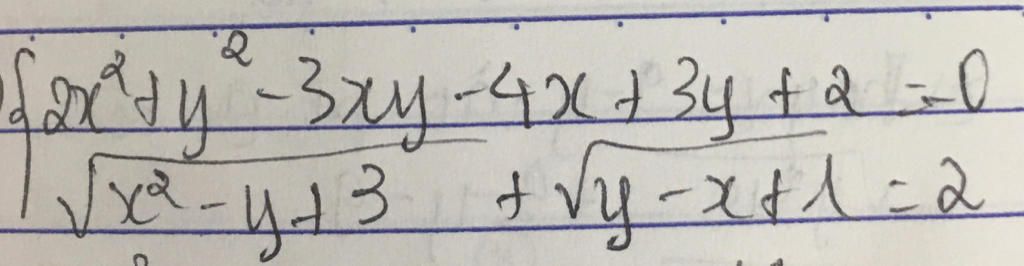 { 2x² + y² - 3xy - 4x + 3y + 2 = 0
√(x² - y + 3) + √(y - x + 1) = 2